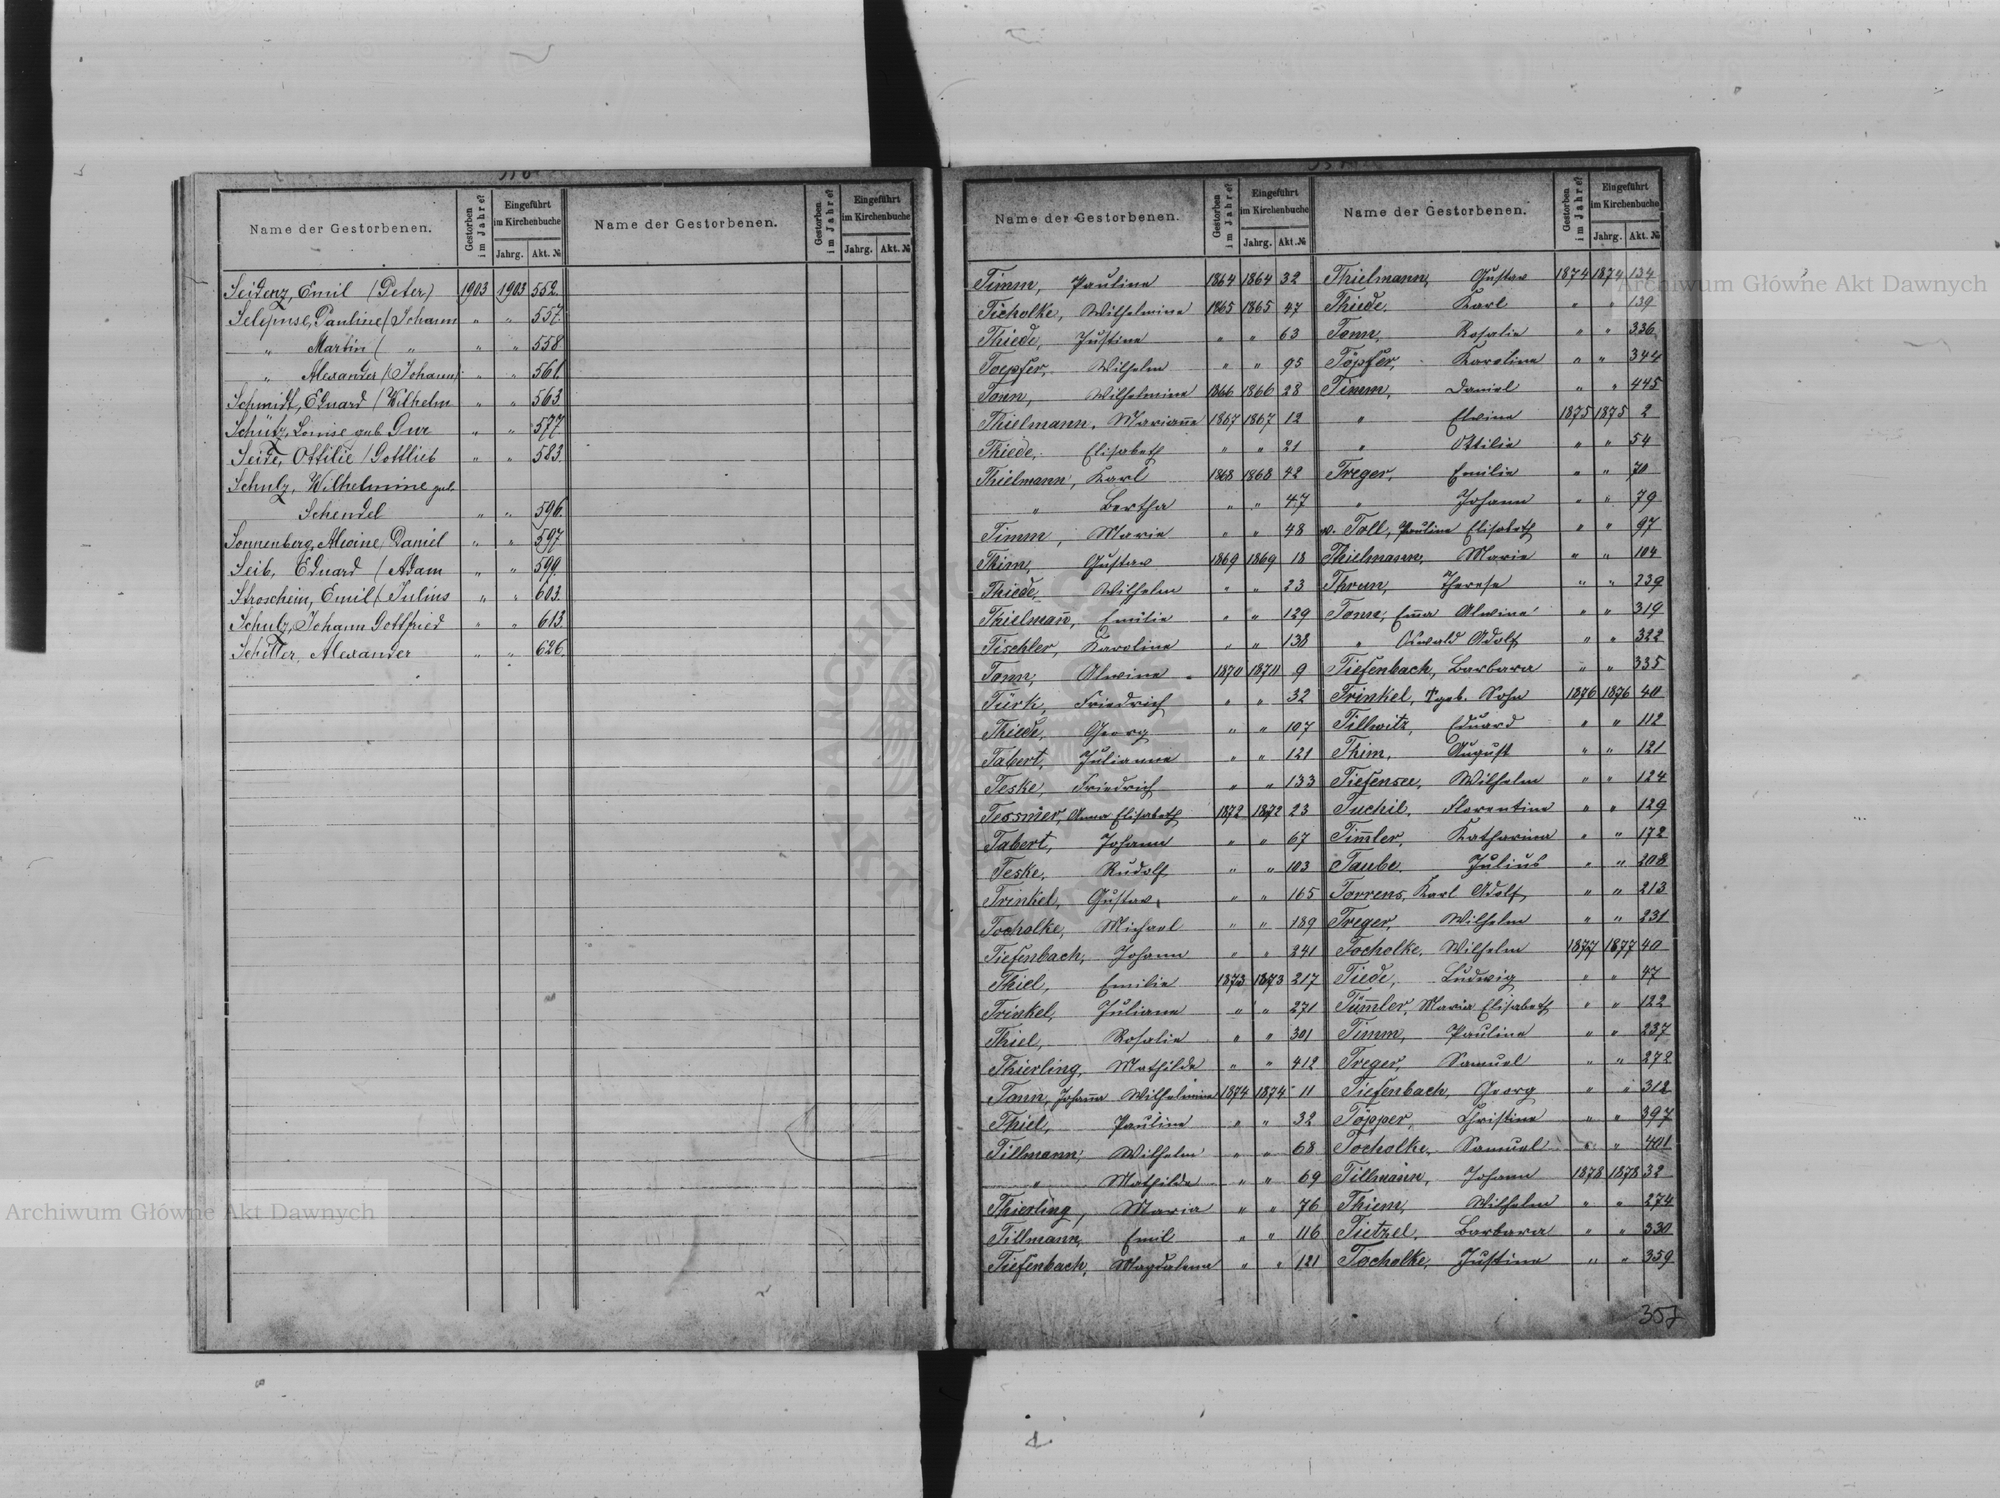 Name der Gestorbenen.
Gestorben im Jahre?
Eingeführt im Kirchenbuche
Jahrg. Akt. №
Name der Gestorbenen.
Gestorben im Jahre?
Eingeführt im Kirchenbuche
Jahrg. Akt. №
Seidenz, Emil (Peter) 1903 1903 552.
Pauline (Johann " " 557.
" Martin ( " " " 558.
" Alexander (Johann) " " 561.
Schmidt, Eduard (Wilhelm " " 563.
Schütz, Louise geb. Gur " " 577.
Seide, Ottilie (Gottlieb " " 583.
Schulz, Wilhelmine geb.
Schendel " " 596.
Sonnenberg, Alwine, Daniel " " 597
Seib, Eduard (Adam " " 599.
Stroschein, Emil (Julius " " 603.
Schulz, Johann Gottfried " " 613.
Schiller, Alexander " " 626.
Name der Gestorbenen.
Gestorben im Jahre?
Eingeführt im Kirchenbuche
Jahrg. Akt. №
Name der Gestorbenen.
Gestorben im Jahre?
Eingeführt im Kirchenbuche
Jahrg. Akt. №
Timm, Pauline 1864 1864 32
Tscholke, Wilhelmine 1865 1865 47
Thiede, Justine " " 63
Toepfer, Wilhelm " " 95
Tonn, Wilhelmine 1866 1866 28
Thielmann, Marian̄e 1867 1867 12
Thiede, Elisabeth " " 21
Thielmann, Karl 1868 1868 42
" Bertha " " 47
Timm, Marie " " 48
Thim, Gustav 1869 1869 18
Thiede, Wilhelm " " 23
Thielman̄, Emilie " " 129
Tischler, Karoline " " 138
Tonn, Alwine 1870 1870 9
Türk, Friedrich " " 32
Thiede, Georg " " 107
Tabert, Julianna " " 121
Teske, Friedrich " " 133
Tessmer, Anna Elisabeth 1872 1872 23
Tabert, Johann " " 67
Teske, Rudolf " " 103
Trinkel, Gustav " " 165
Tocholke, Michael " " 189
Tiefenbach, Johann " " 241
Thiel, Emilie 1873 1873 217
Trinkel, Juliana " " 271
Thiel, Rosalie " " 301
Thierling, Mathilde " " 412
Tonn, Johan̄a Wilhelmine 1874 1874 11
Thiel, Pauline " " 32
Tillmann, Wilhelm " " 68
" Mathilde " " 69
Thierling, Maria " " 76
Tillmann, Emil " " 116
Tiefenbach, Magdalena " " 121
Thielmann, Gustav 1874 1874 134
Thiede, Karl " " 139
Tonn, Rosalie " " 336
Töpfer, Karoline " " 344
Timm, Daniel " " 445
" Elvine 1875 1875 2
" Ottilie " " 54
Treger, Emilie " " 70
" Johann " " 79
v. Toll, Pauline Elisabeth " " 97
Thielmann, Marie " " 104
Thrun, Therese " " 239
Tonn, Em̄a Alwine " " 319
" Oswald Adolf " " 322
Tiefenbach, Barbara " " 335
Trinkel, geb. Sohn 1876 1876 40
Tillwitz, Eduard " " 112
Thim, August " " 121
Tiefensee, Wilhelm " " 124
Tuchil, Florentine " " 129
Tim̄ler, Katharina " " 172
Taube, Julius " " 208
Torrens, Karl Adolf " " 213
Treger, Wilhelm " " 231
Tocholke, Wilhelm 1877 1877 40
Tiede, Ludwig " " 47
Tüm̄ler, Maria Elisabeth " " 122
Timm, Pauline " " 237
Treger, Samuel " " 272
Tiefenbach, Georg " " 312
Töpper, Christine " " 397
Tocholke, Samuel " " 401
Tillmann, Johann 1878 1878 32
Thiem, Wilhelm " " 274
Tietzel, Barbara " " 330
Tocholke, Justine " " 359
357
Archiwum Główne Akt Dawnych
Archiwum Główne Akt Dawnych